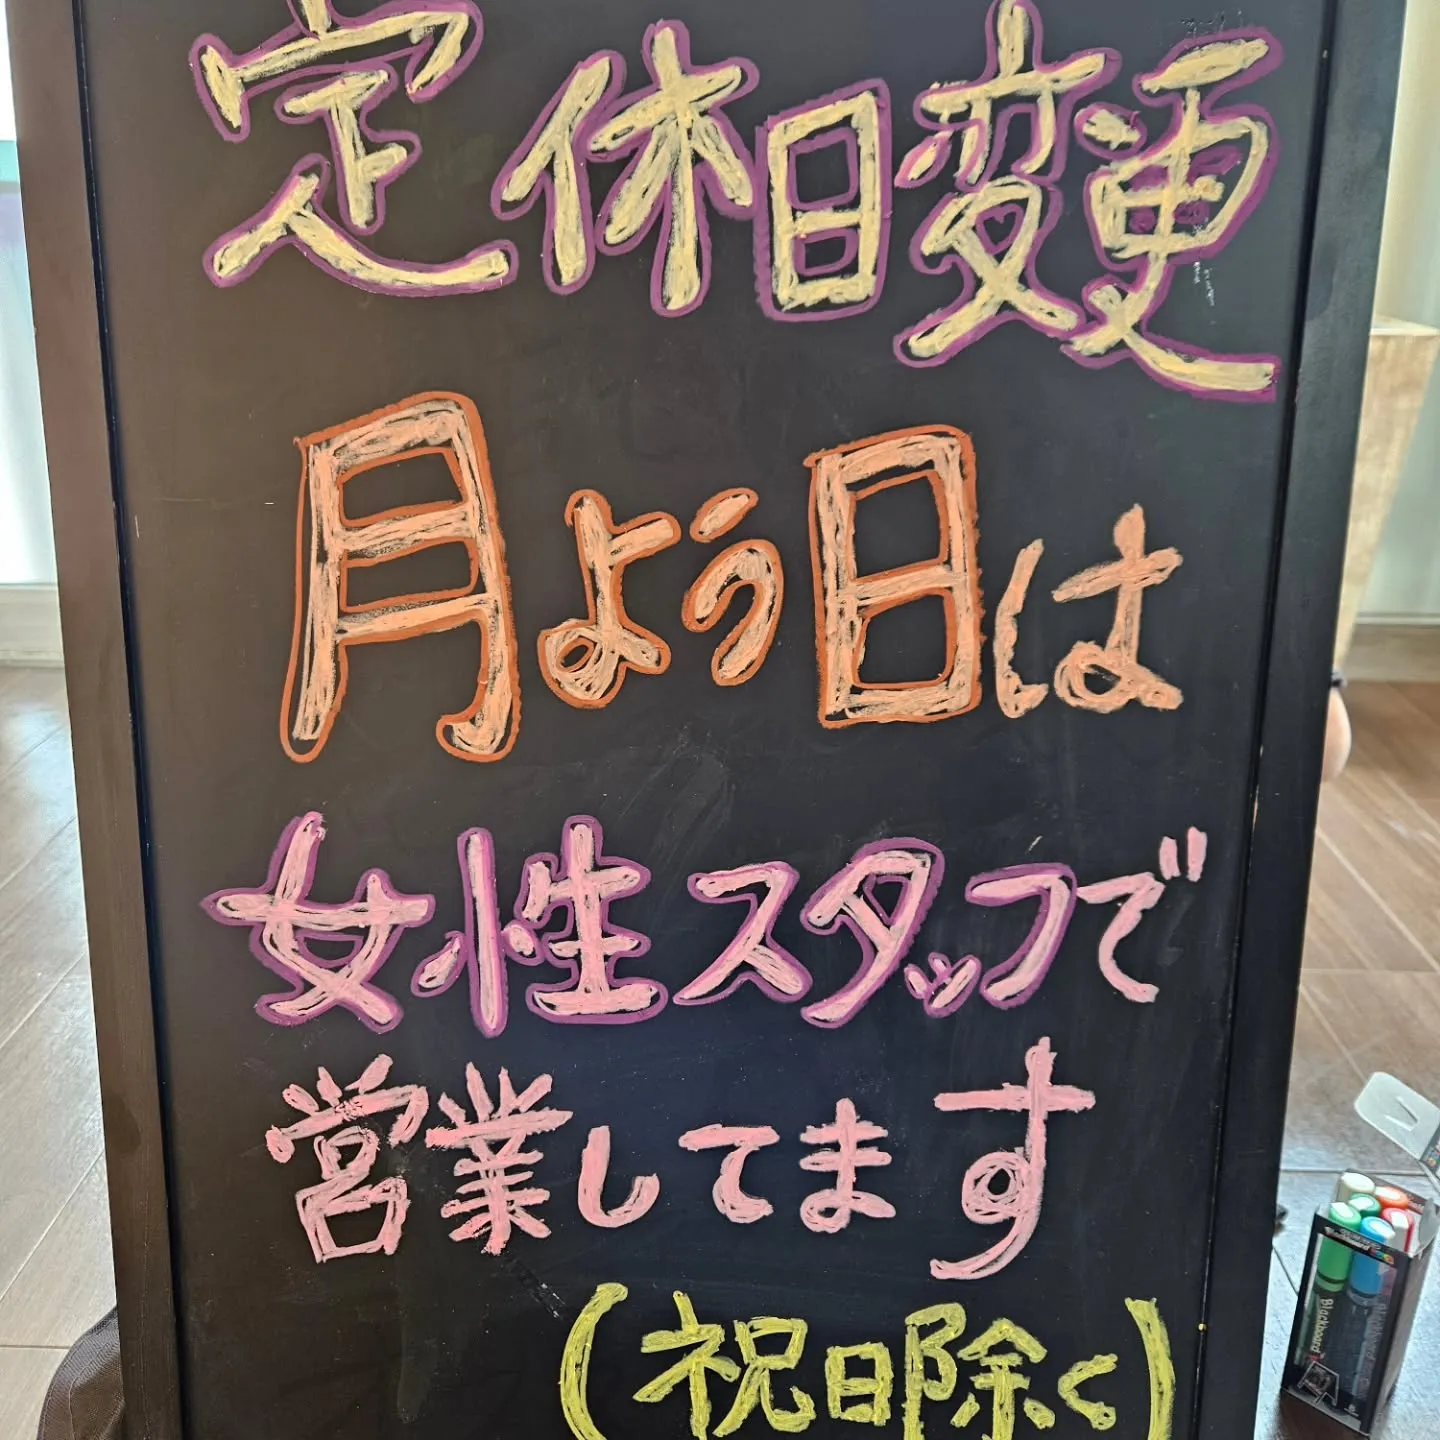 定休日変更
月よう日は
女性スタッフで
営業してます
(祝日除く)
Blackboard